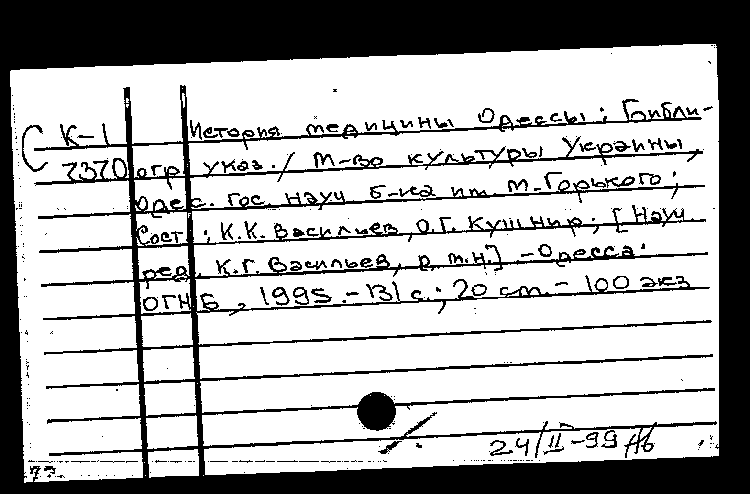 С К-1 История медицины Одессы: Библи-
7370 огр. указ. / М-во культуры Украины,
Одес. гос. науч б-ка им. М. Горького;
Сост.: К.К. Васильев, О.Г. Кушнир; [Науч.
ред. К.Г. Васильев, д. м.н.] - Одесса:
ОГНБ, 1995. - 131 с.; 20 см. - 100 экз
24/II-99